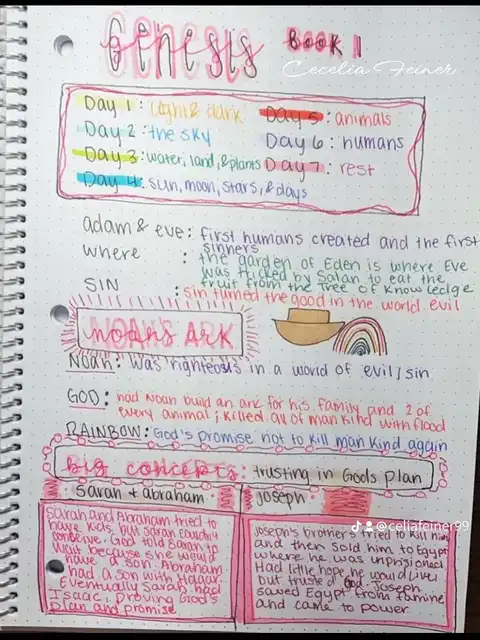 GENESIS BOOK 1
Cecelia Feiner
Day 1: light & dark
Day 2: the sky
Day 3: water, land, & plants
Day 4: sun, moon, stars, & days
Day 5: animals
Day 6: humans
Day 7: rest
adam & eve: first humans created and the first
sinners
where : the garden of Eden is where Eve
was tricked by Satan to eat the
fruit from the Tree of Knowledge
SIN : sin turned the good in the world evil
NOAH'S ARK
Noah: was righteous in a world of evil/sin
GOD: had Noah build an ark for his family and 2 of
every animal; killed all of mankind with flood
RAINBOW: God's promise not to kill mankind again
big concepts: trusting in Gods plan
sarah + abraham.
Sarah and Abraham tried to
have kids, but Sarah couldn't
conceive. God told Sarah to
wait because she would
have a son. Abraham
had a son with Hagar.
Eventually Sarah had
Isaac, proving God's
plan and promise
joseph
Joseph's brothers tried to kill him
and then sold him to Egypt
where he was imprisoned
Had little hope he would live,
but trusted God. Joseph
saved Egypt from famine
and came to power
@celiafeiner99